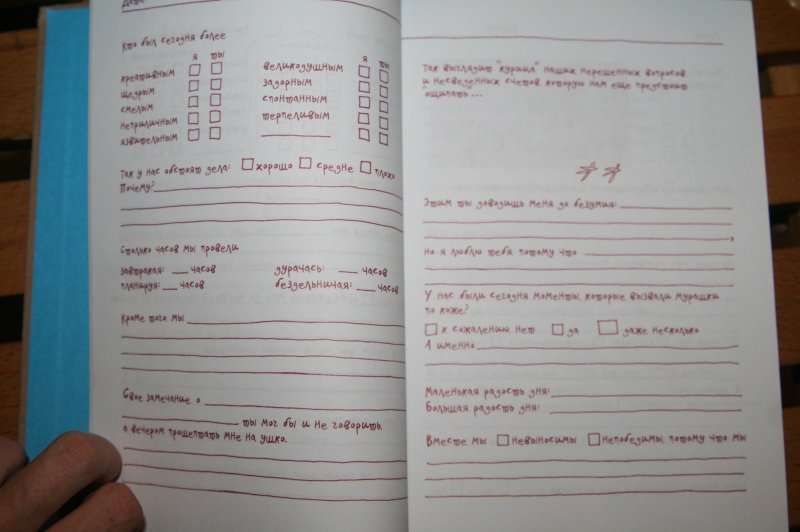 Дата
Кто был сегодня более
я ты
креативным
щедрым
смелым
неприличным
язвительным
я ты
великодушным
задорным
спонтанным
терпеливым
Так у нас обстоят дела: хорошо средне плохо
Почему?
Столько часов мы провели
завтракая: часов дурачась: часов
планируя: часов бездельничая: часов
Кроме того, мы
Свое замечание о
ты мог бы и не говорить,
а вечером прошептать мне на ушко.
Так выглядит "курица" наших нерешенных вопросов
и несведенных счетов, которую нам еще предстоит
"ощипать"...
Этим ты доводишь меня до безумия:
но я люблю тебя, потому что
У нас были сегодня моменты, которые вызвали мурашки
по коже?
к сожалению, нет да даже несколько
А именно
Маленькая радость дня:
Большая радость дня:
Вместе мы невыносимы непобедимы, потому что мы